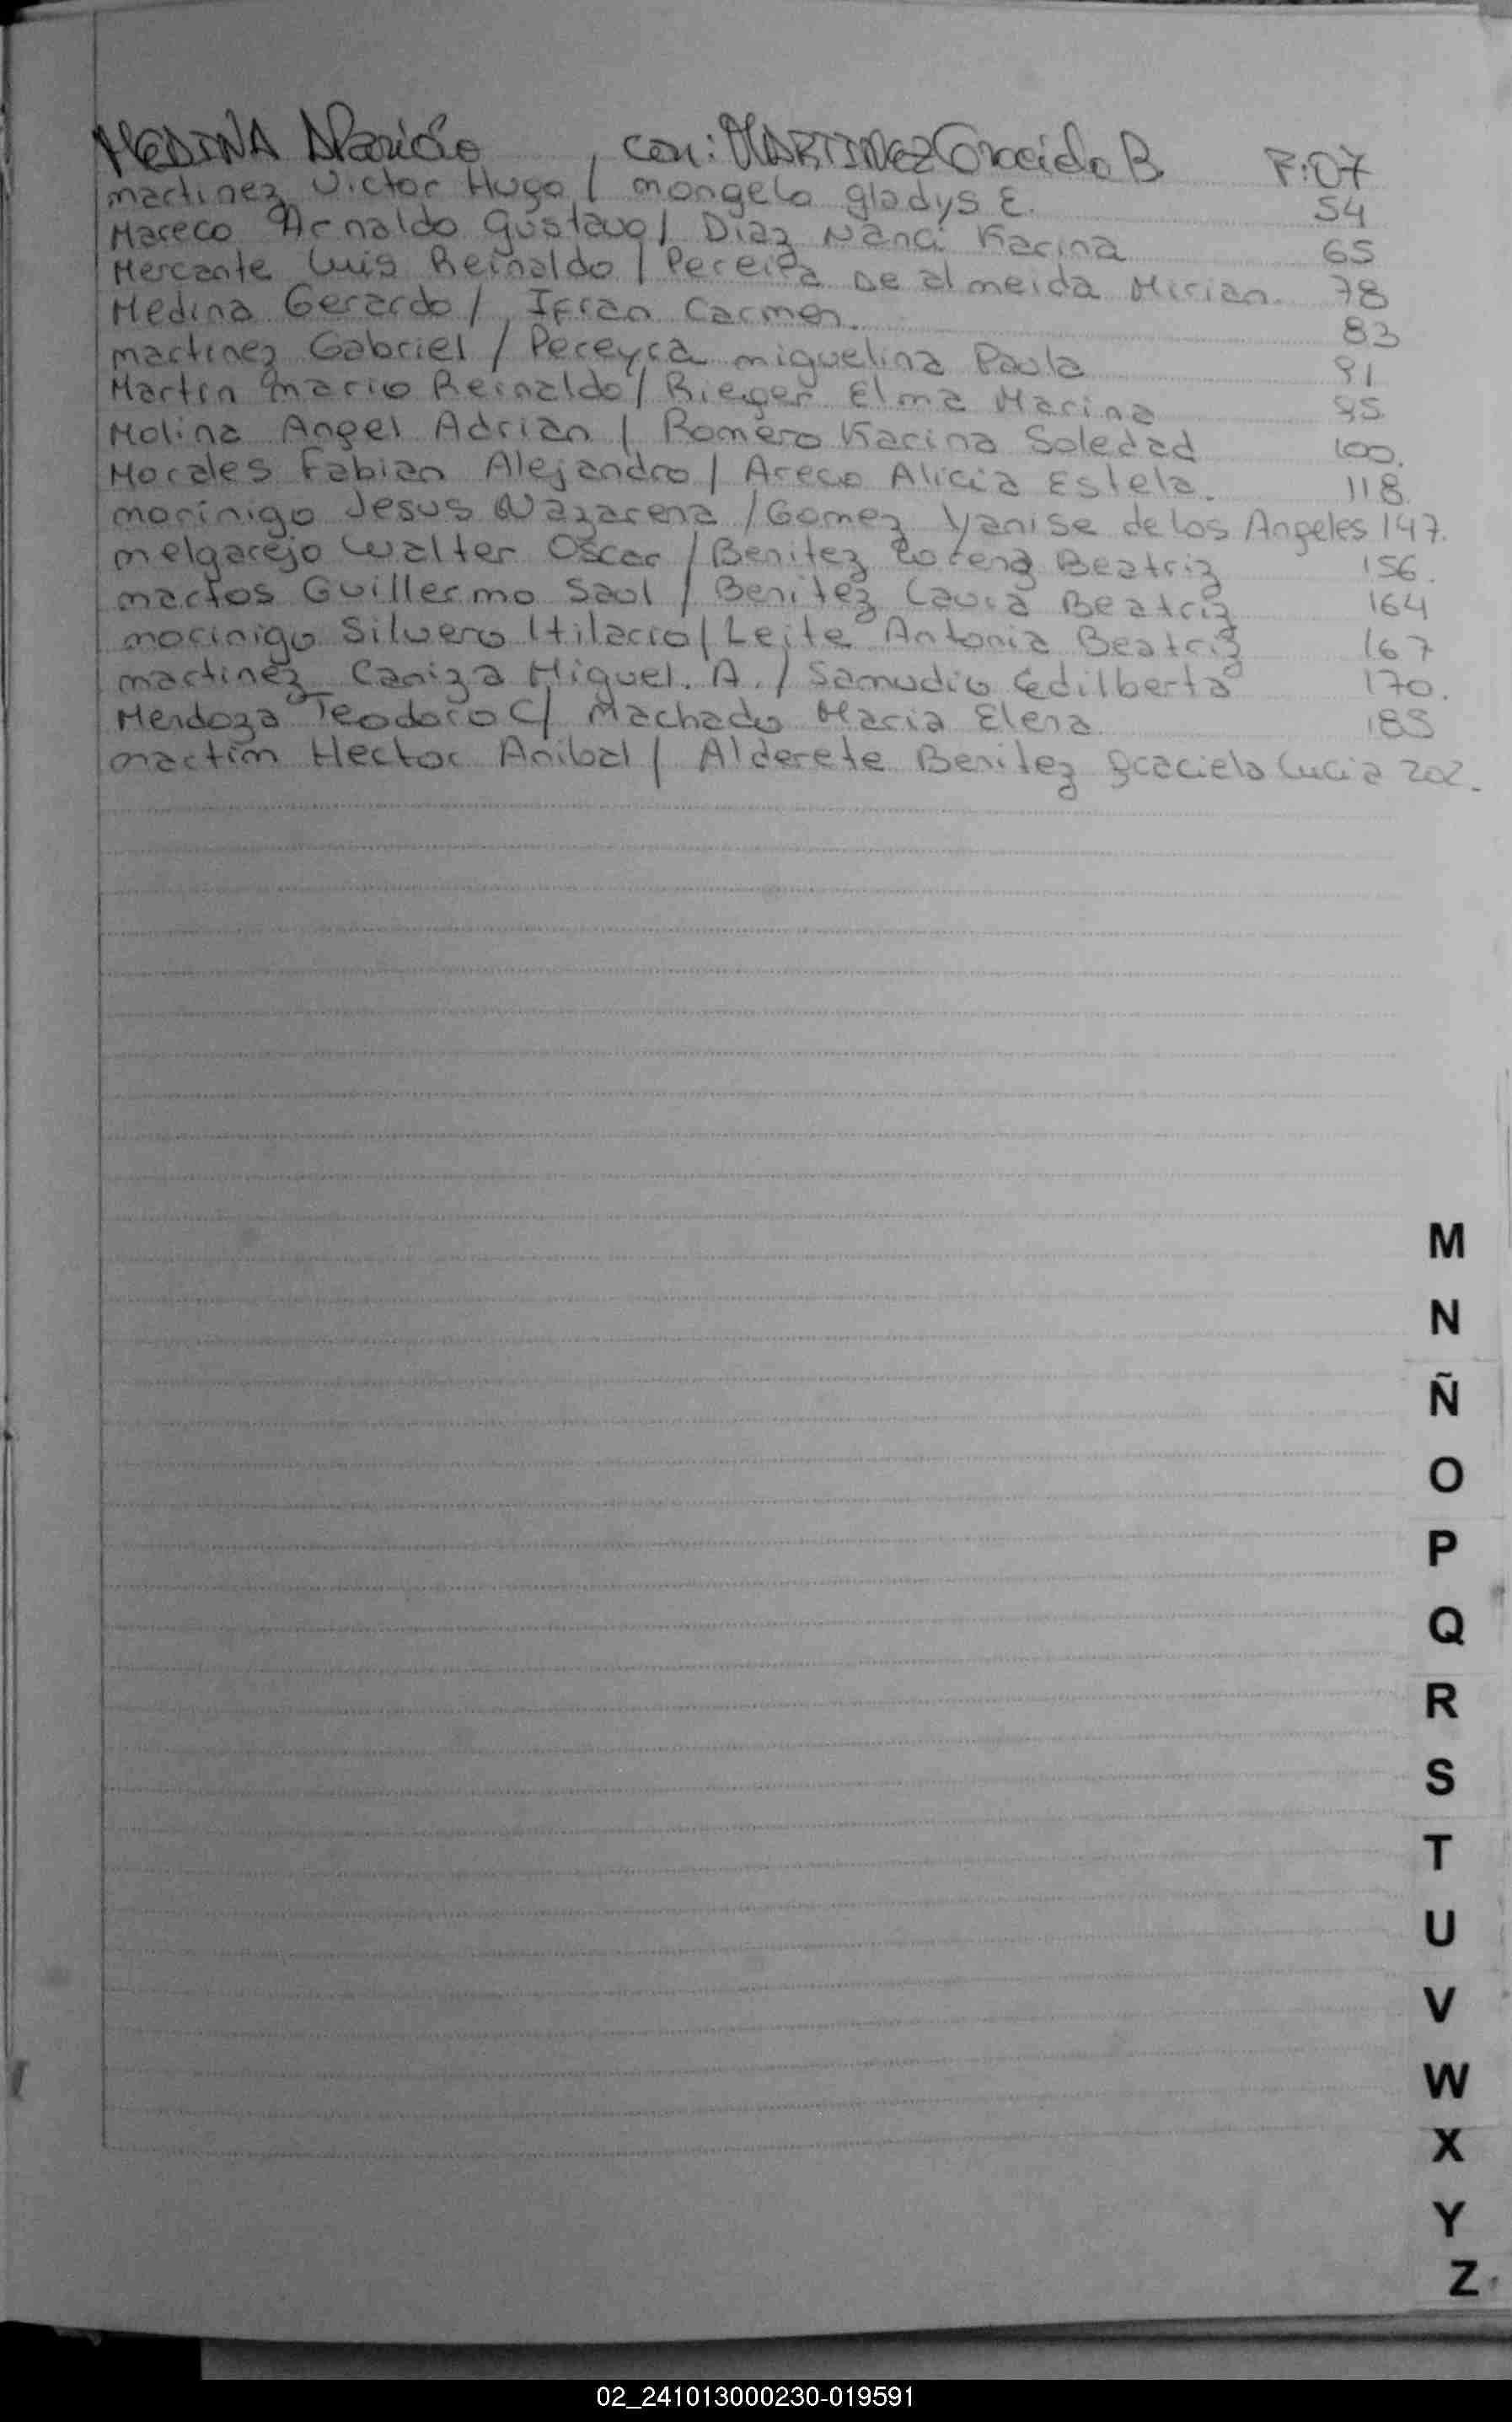 MEDINA Aparicio , con: MARTINEZ Graciela B. F:07
martinez Victor Hugo / mongelo gladys E. 54
Mareco Arnaldo Gustavo / Diaz Nanci Karina 65
Mercante Luis Reinaldo / Pereira De almeida Mirian. 78
Medina Gerardo / Ifran Carmen. 83
martinez Gabriel / Pereyra miguelina Paola 91
Martin mario Reinaldo / Rieger Elma Marina 95
Molina Angel Adrian / Romero Karina Soledad 100.
Morales Fabian Alejandro / Areco Alicia Estela. 118
morinigo Jesus Nazareno / Gomez Yanise de los Angeles 147.
melgarejo Walter Oscar / Benitez Lorena Beatriz 156.
martos Guillermo Saul / Benitez Laura Beatriz 164
morinigo Silvero Hilario / Leite Antonia Beatriz 167
martinez Caniza Miguel. A. / Samudio Edilberta 170.
Mendoza Teodoro C/ Machado Maria Elena 185
martim Hector Anibal / Alderete Benitez graciela Lucia 202.
M
N
Ñ
O
P
Q
R
S
T
U
V
W
X
Y
Z
02_241013000230-019591